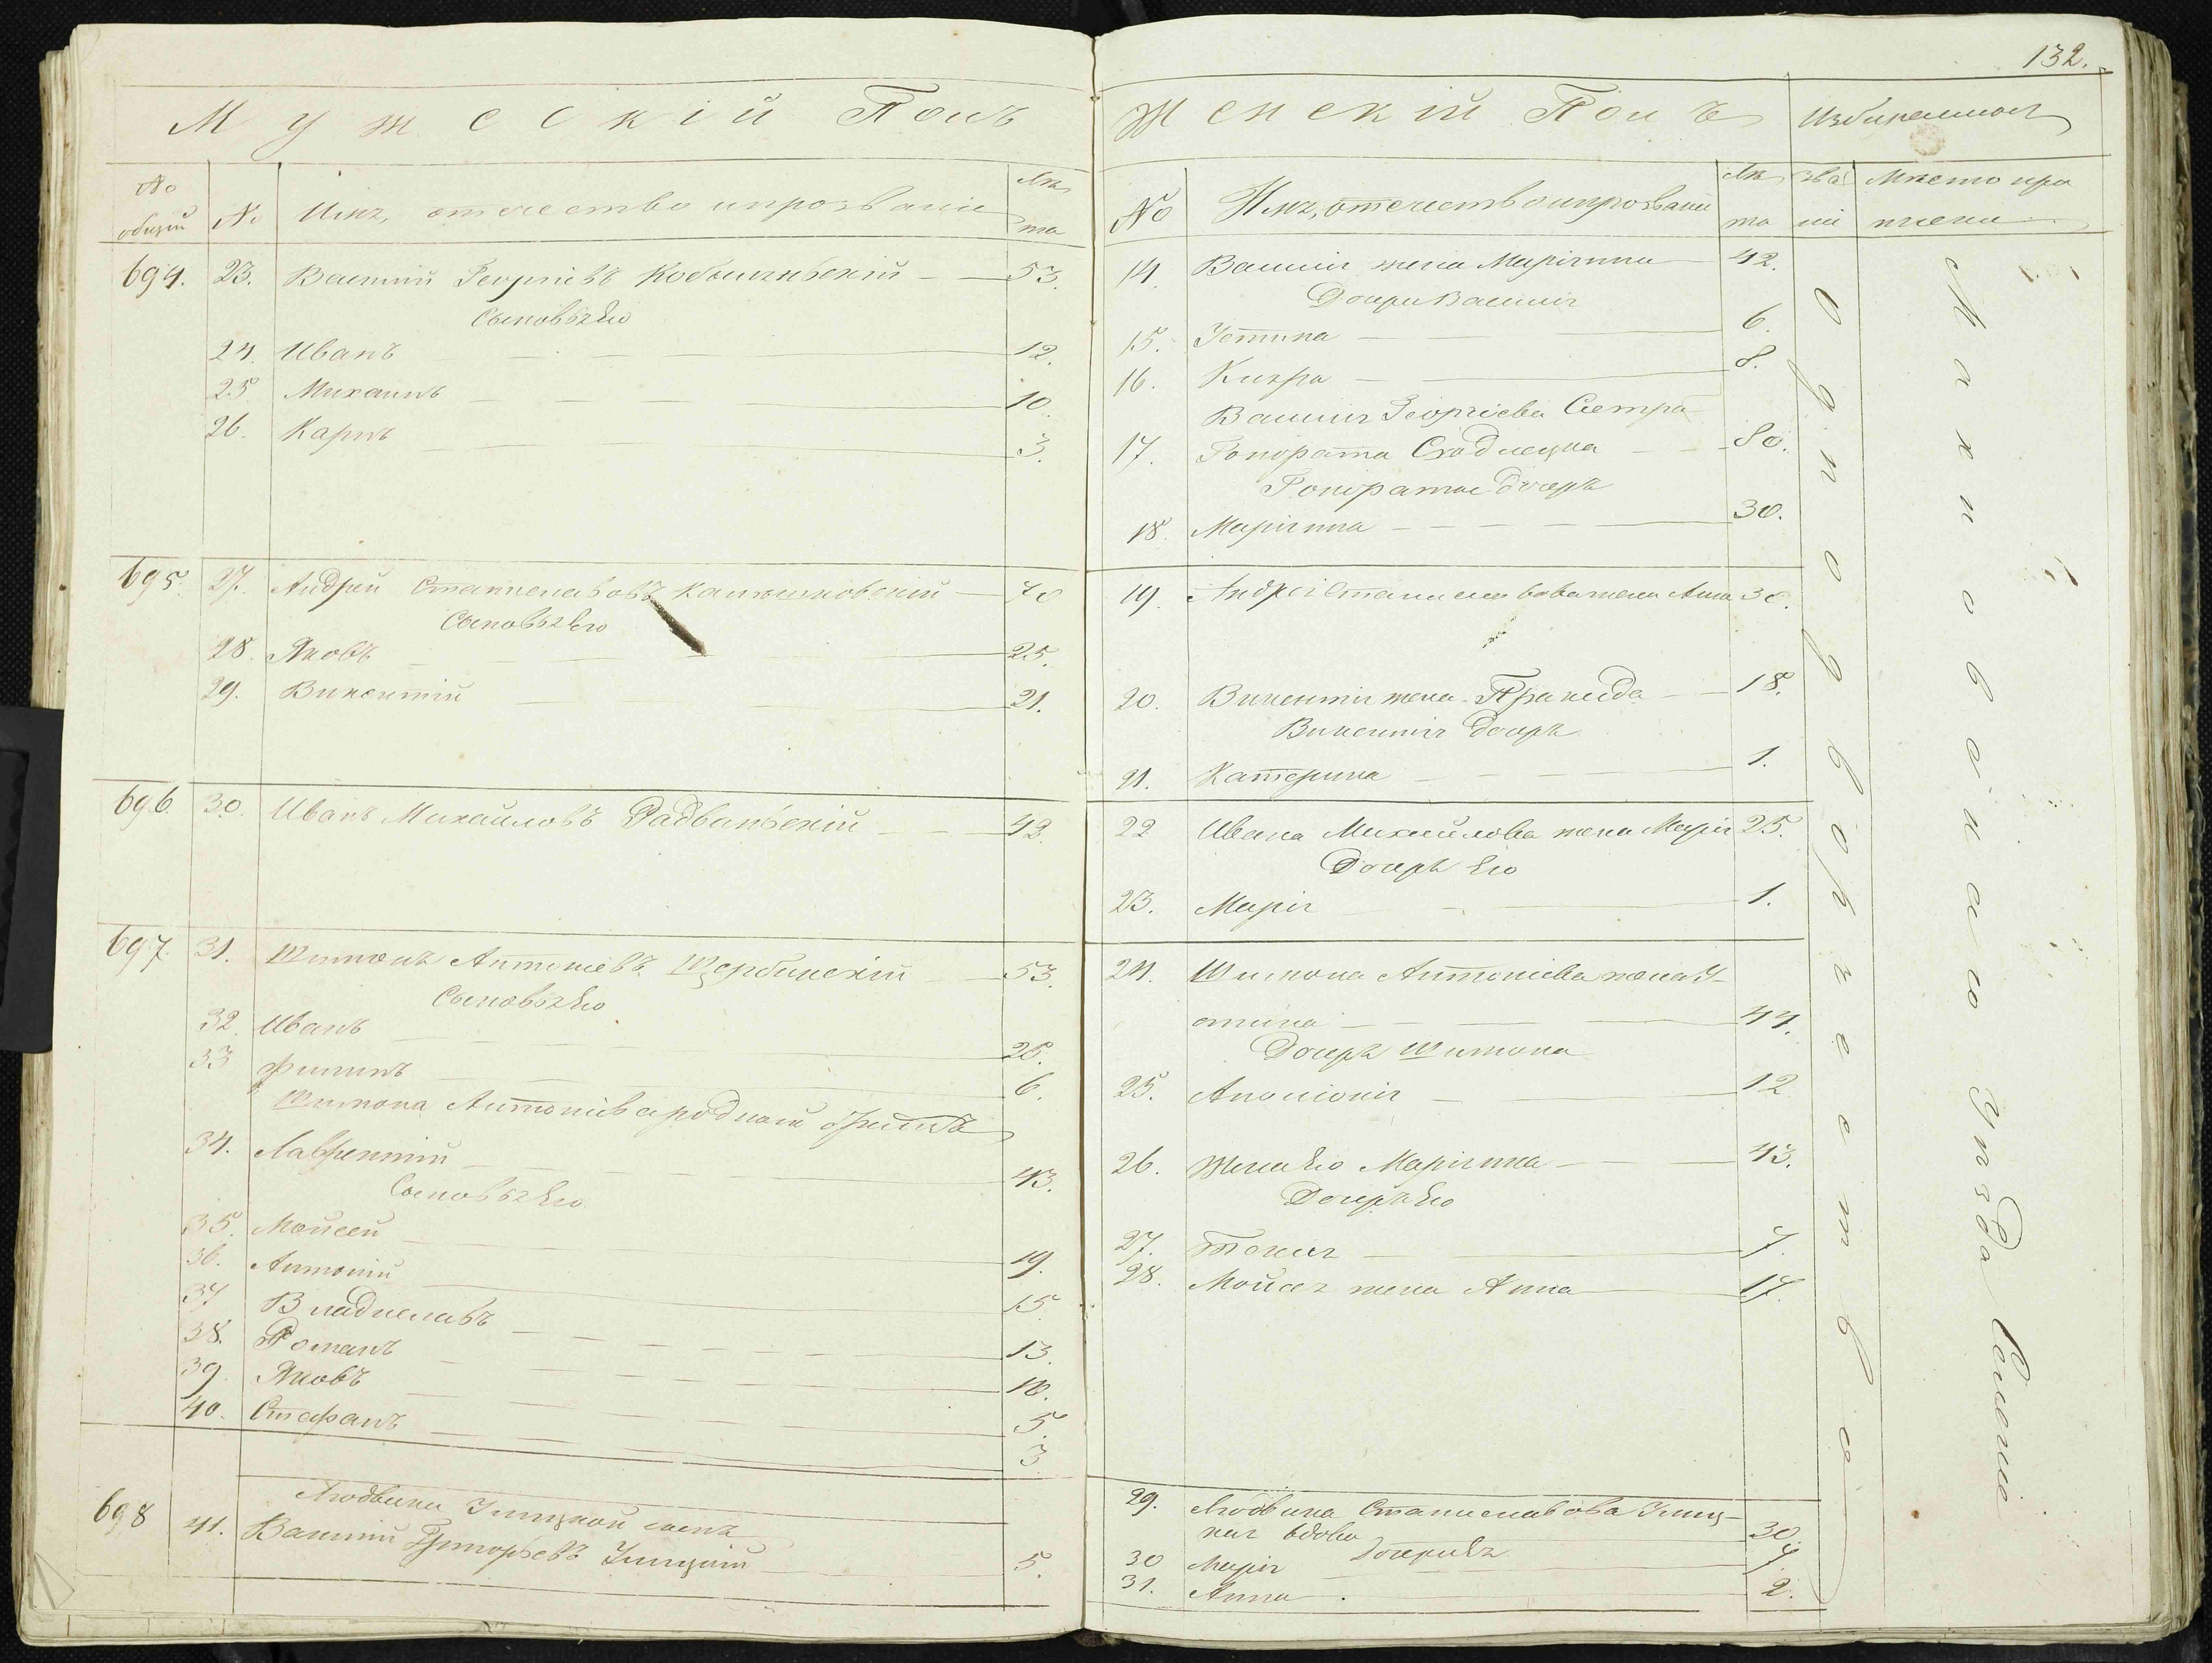 132.
Мужескій Полъ
№ общій
№
Имя, отечество и прозваніе
Лѣта
694. 23. Василий Георгіевъ Кобылянский 53.
Сыновья Его
24. Иванъ 12.
25 Михаилъ 10.
26. Карпъ 3.
695. 27. Андрей Станиславовъ 70
Сыновья Его
28. Яковъ 25.
29. Викентій 21.
696. 30. Иванъ Михайловъ Радванский 42.
697. 31. Шимонъ Антоніевъ Щербинскій 53.
Сыновья Его
32. Иванъ 25.
33 Филипъ 6.
Шимона Антоніева родной братъ
34. Лаврентій 43.
Сыновья Его
35. Мойсей 19.
36. Антоній 15.
37 Владиславъ 13.
38. Романъ 10.
39. Яковъ 5.
40. Стефанъ 3.
698 Людвики Улицкой сынъ
41. Василий Григорьевъ Улицкий 5.
Женскій Полъ
№
Имя, отечество и прозвание
Лѣта
званіе
Место при
писки
14. Василия жена Маріянна 42.
Дочери Василия
15. Устина 6.
16. Килра 8.
Василия Георгіева Сестра
17. Гонората 80.
Гонораты дочерь
18. Маріянна 30.
19. Андрея Станиславова жена Анна 30.
20. Викентия жена Пракседа 18.
Викентия дочерь
21. Катерина 1.
22 Ивана Михайлова жена Марія 25.
Дочерь Его
23. Марія 1.
24. Шимона Антоніева жена У-
стина 44.
Дочерь Шимона
25. Аполонія 12
26. Жена Его Маріянна 43.
Дочерь Его
27. Текля 7.
28. Мойсея жена Анна 17.
29. Людвика Станиславова Улиц-
кая вдова 30.
Дочери Ея
30 Марія 7.
31. Анна 2.
Однодворчества
Махновскаго Уѣзда